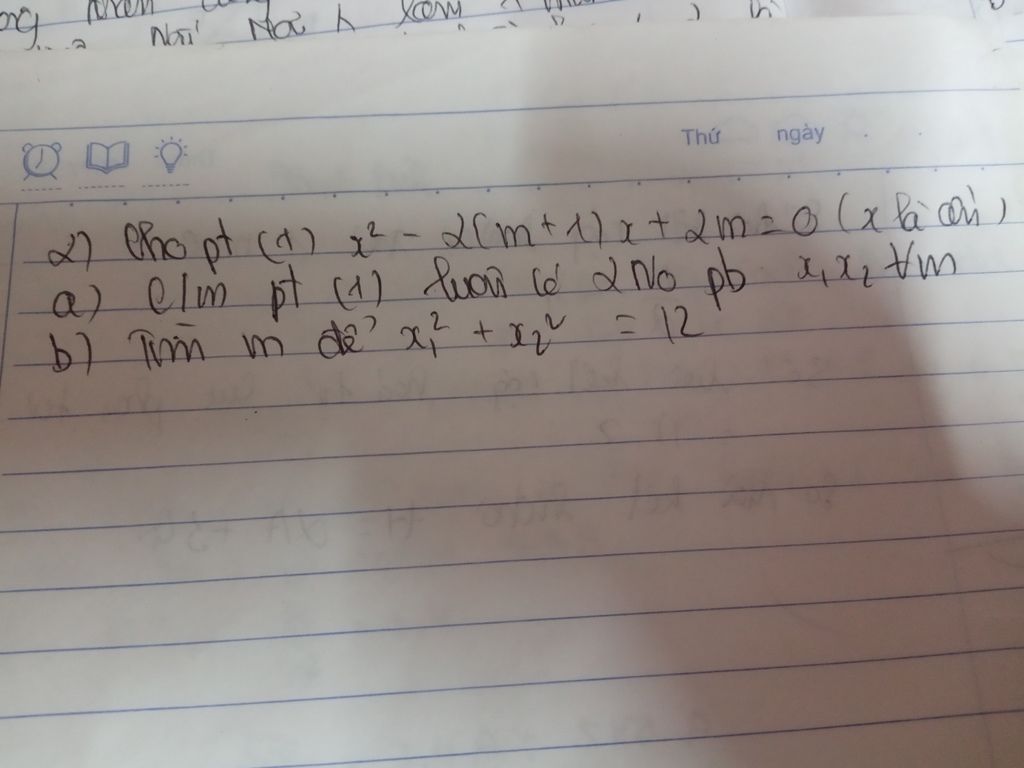 Thứ ngày
2) Cho pt (1) x² - 2(m+1)x + 2m = 0 (x là ẩn)
a) C/m pt (1) luôn có 2 No pb x₁ x₂ ∀m
b) Tìm m để x₁² + x₂² = 12